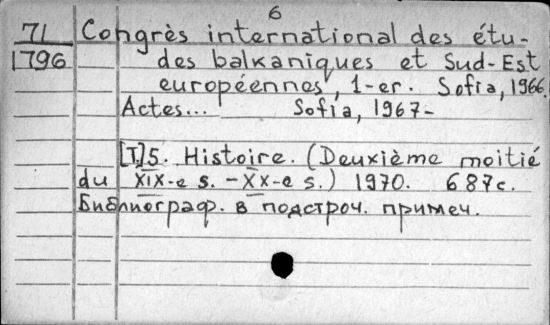 6
71 Congrès international des étu-
1796 des balkaniques et Sud-Est
européennes, 1-er. Sofia, 1966.
Actes... Sofia, 1967-
[T.]5. Histoire. (Deuxième moitié
du XIX-e s. - XX-e s.) 1970. 687c.
Библиограф. в подстроч. примеч.